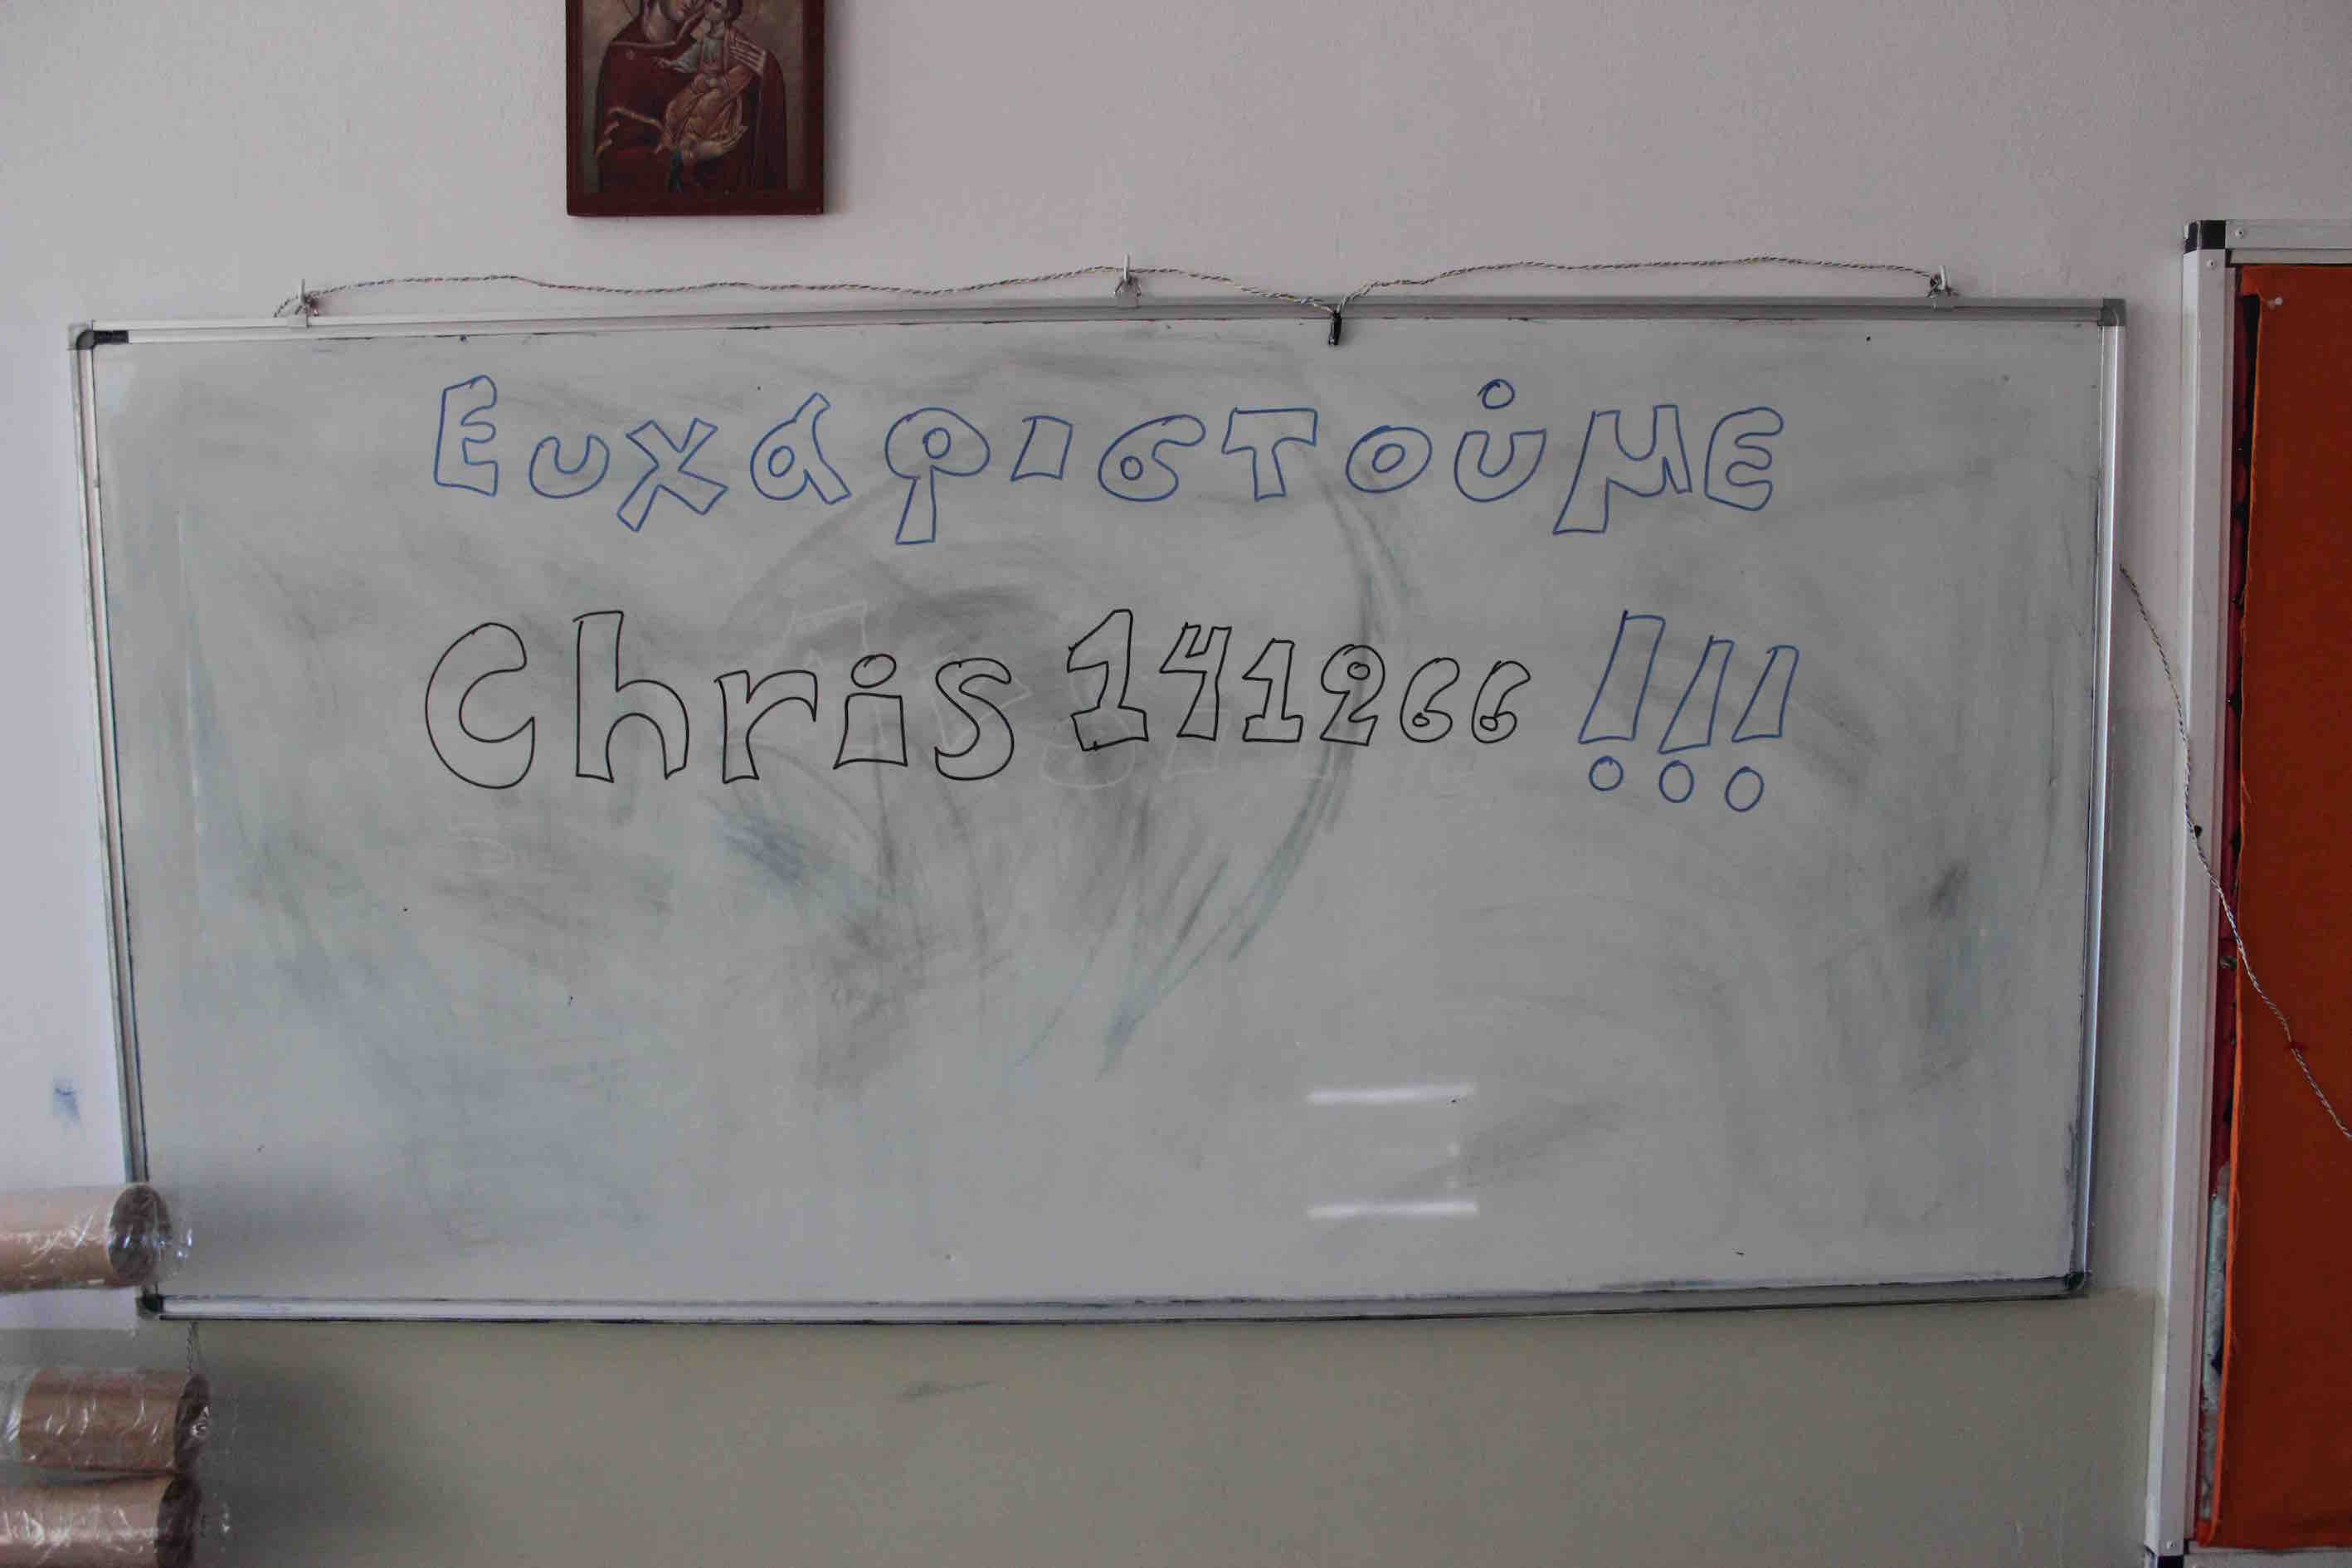 Ευχαριστούμε
Chris 141266 !!!